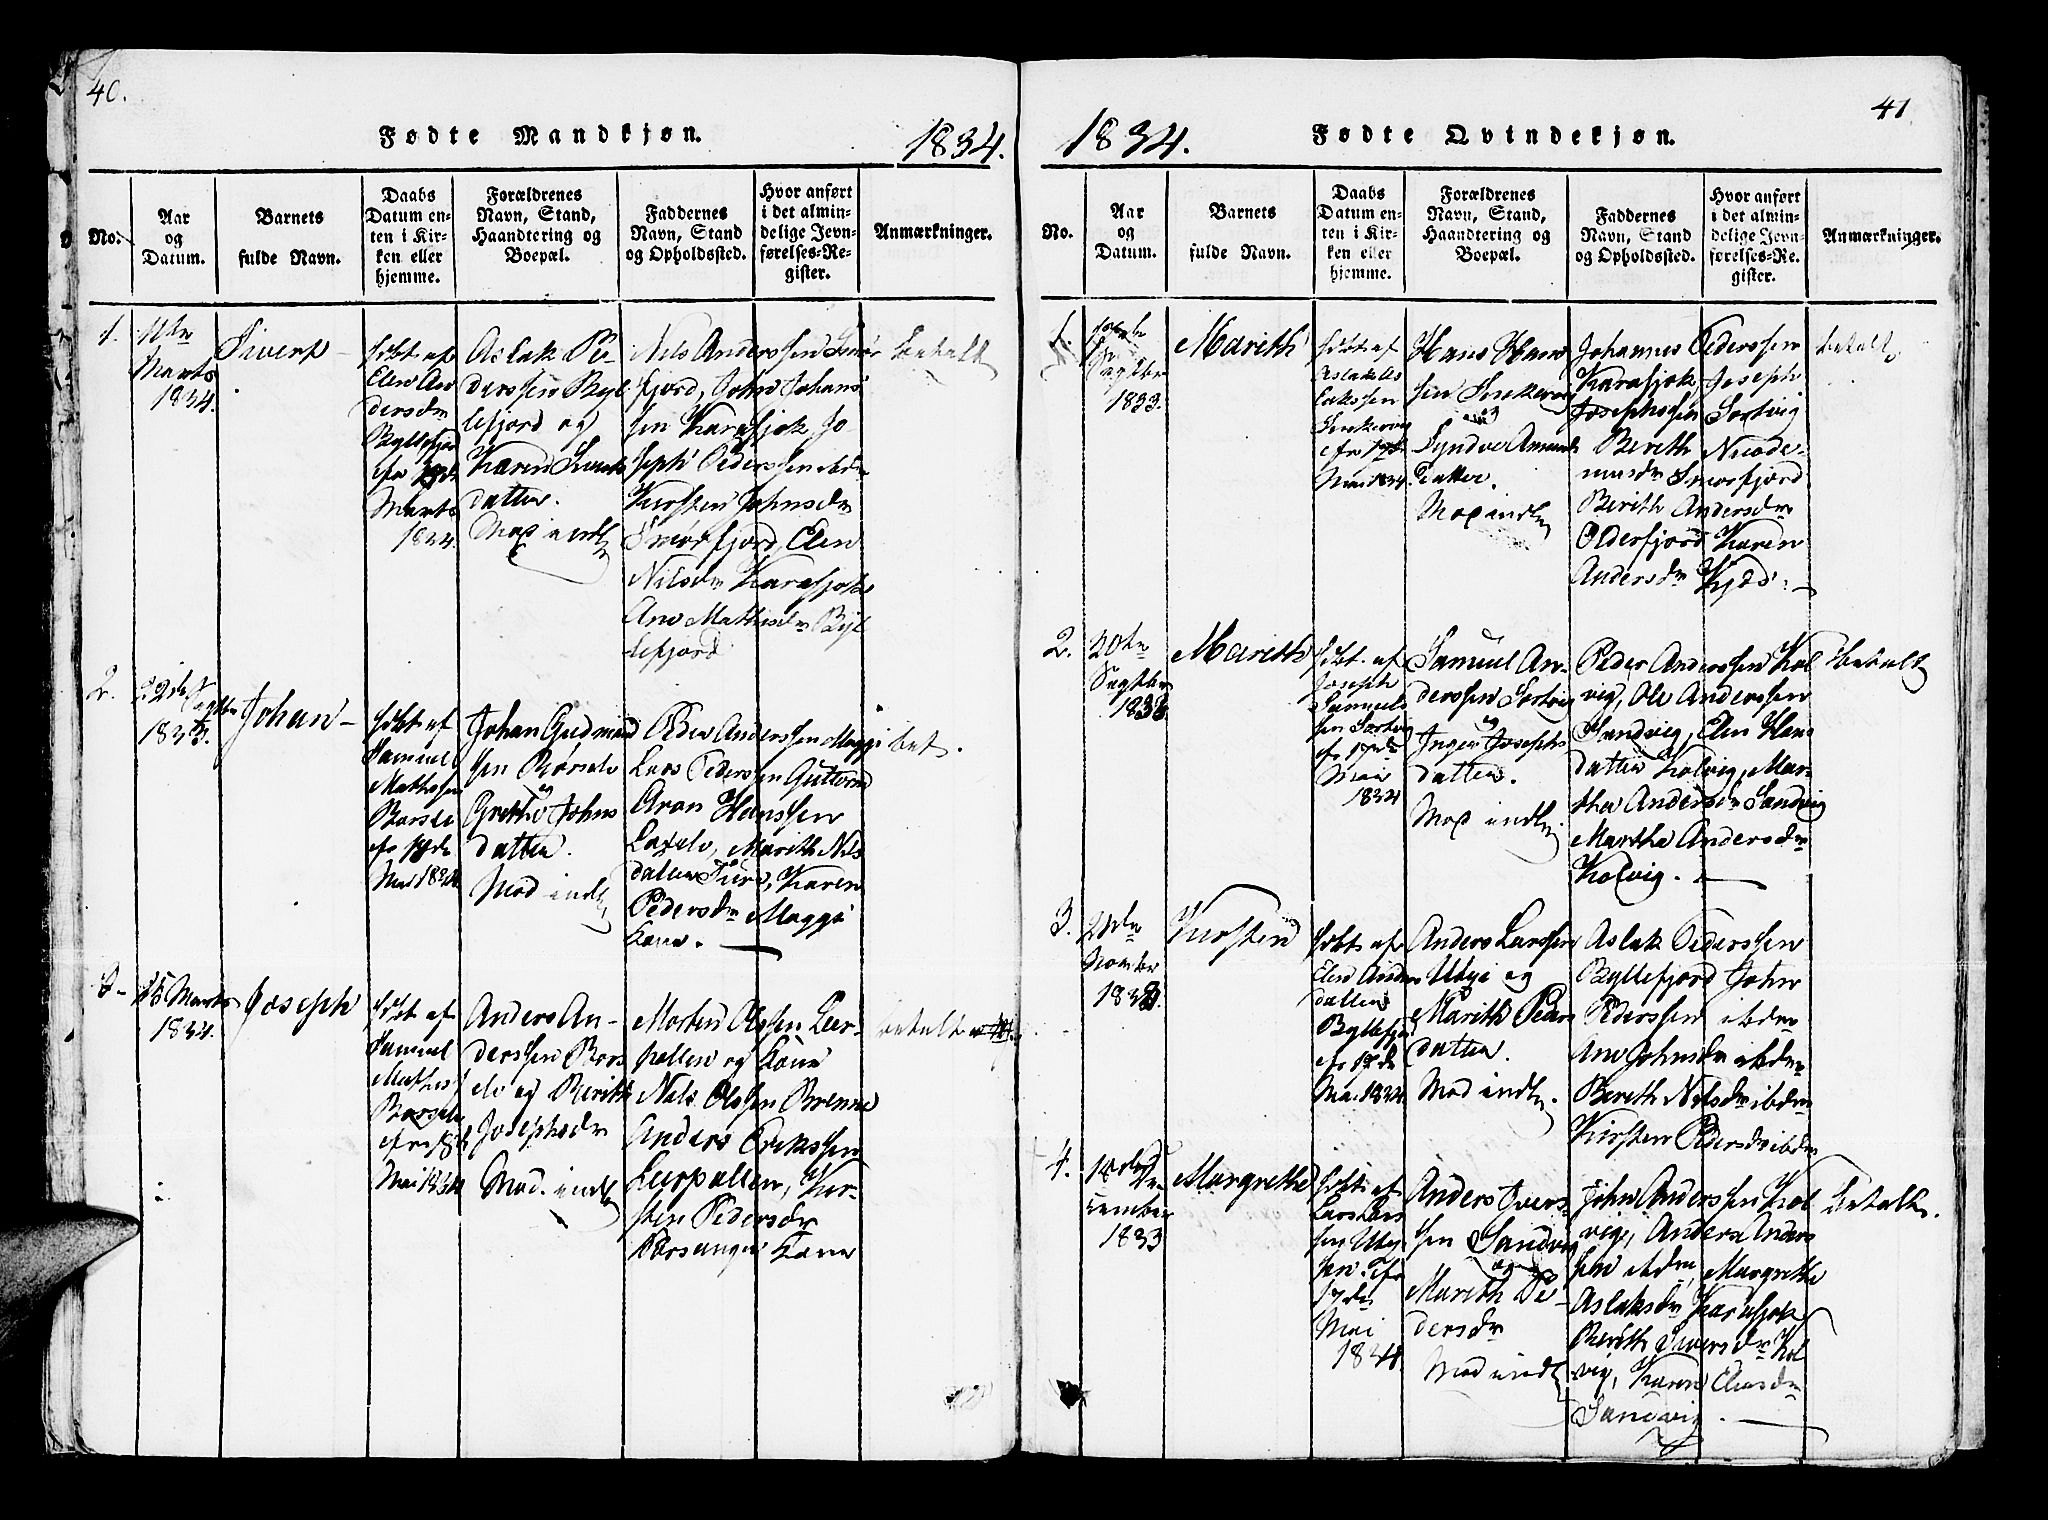 40.
Fødte Mandkjøn.
1834.
No.
Aar
og
Datum.
Barnets
fulde Navn.
Daabs
Datum en-
ten i Kir-
ken eller
hjemme.
Forældrenes
Navn, Stand,
Haandtering og
Boepæl.
Faddernes
Navn, Stand
og Opholdssted.
Hvor anført
i det almin-
delige Jevn-
førelses-Re-
gister.
Anmærkninger.
1.
11te
Marts
1834.
Siverp
döbt af
Elen An
dersdr
Byllefjord
Marts
1834.
Aslak Pe-
derssen Byl
lefjord og
Karen
datter.
Mod indl
Nils Anderssen Smör
fjord, John Johans
sen Karasjok Jo
seph Pederssen ibdm
Kirsten Johnsdr
Smörfjord, Elen
Nilsdr Karasjok
Ane Mathisdr Byl
lefjord
betalt
2.
22de Septbr
1833.
Johan
döbt af
Samuel
Mathisen
Börselv
Mai 1834
Johan Gudmund
sen Börselv
og
Grethe Johns
datter.
Mod indl
Peder Anderssen Maggi
Lars Pederssen Guttorm
Aron Hanssen
Laxelv, Marith Nils
datter, Karen
Pedersdr Maggi
Kone.
bet.
3
15 Marts
1834.
Joseph
döbt af
Samuel
Mathis
Börselv
Mai 1834
Anders An-
derssen Börs
elv og Berith
Josephsdr
Mod. indl
Morten Olssen Leer-
pollen og Kone
Nils Olssen Brenne
Anders Erikssen
Leerpollen, Kir-
sten Pedersdr
Porsanger Kone
betalt
41
1834.
Fødte Qvindekjøn.
No.
Aar
og
Datum.
Barnets
fulde Navn.
Daabs
Datum en-
ten i Kir-
ken eller
hjemme.
Forældrenes
Navn, Stand,
Haandtering og
Boepæl.
Faddernes
Navn, Stand
og Opholdssted.
Hvor anført
i det almin-
delige Jevn-
førelses-Re-
gister.
Anmærkninger.
1.
Septbr
1833.
Marith
döbt af
Aslak As
lakssen
Mai 1834.
Hans Hans
sen
og
Syndve Amunds
datter.
Mod indl
Johannes Pederssen
Karasjok, Joseph
Josephssen Sortvig
Berith Nicode-
musdr Smörfjord
Berith Andersdr
Olderfjord Karen
Andersdr
betalt
2.
20de
Septbr
1833.
Marith
döbt af
Joseph
Samuels
sen Sortvig
17de
Mai
1834
Samuel An-
derssen Sortvig
og
Inger Josephs
datter.
Mod indl
Peder Anderssen Kol
vig, Ole Anderssen
Sandvig, Elen Hans
datter Kolvig, Mar-
tha Andersdr Sandvig
Martha Andersdr
Kolvig.
betalt
3.
Novmbr
1833.
Kirsten
döbt af
Elen Anders
datter
Byllefjord
17de
Mai 1834
Anders Larssen
og
Marith Peders
datter.
Mod indl.
Aslak Pederssen
Byllefjord John
Pederssen ibdm
Ane Johnsdr ibdm
Berith Nilsdr ibdm
Kirsten Pedersdr ibdm
4.
18de De
cember
1833
Margrethe
döbt af
Lars Lars
sen
17de
Mai
1834
Anders Ivers-
sen Sandvig
og
Marith Pe-
dersdr
Mod indl
John Anderssen Kol
vig, Anders Anders
sen ibdm, Margrethe
Aslaksdr Karasjok
Berith Siversdr Kol
vig, Karen Eliasdr
Sandvig.
betalt.